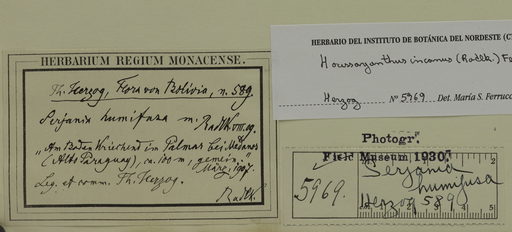 HERBARIUM REGIUM MONACENSE.
Th. Herzog, Flora von Bolivia, n. 589.
Serjania humifusa m. Radlkofer
"Am Boden kriechend im Palmar bei
(Alto Paraguay), ca. 100 m, gemein."
März, 1907.
Leg. et comm. Th. Herzog.
Radlk.
HERBARIO DEL INSTITUTO DE BOTÁNICA DEL NORDESTE (C
Houssayanthus incanus (Radlk.) Fe
Herzog Nº 5969 Det. María S. Ferrucc
Photogr.
Field Museum 1930.
5969.
Serjania
humifusa
Herzog 589